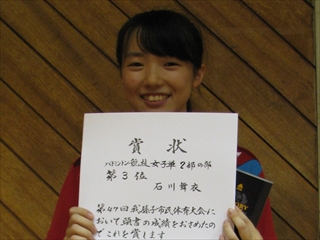 賞状
バドミントン競技 女子単2部の部
第3位
石川舞衣
第47回我孫子市民体育大会に
おいて頭書の成績をおさめたの
でこれを賞します